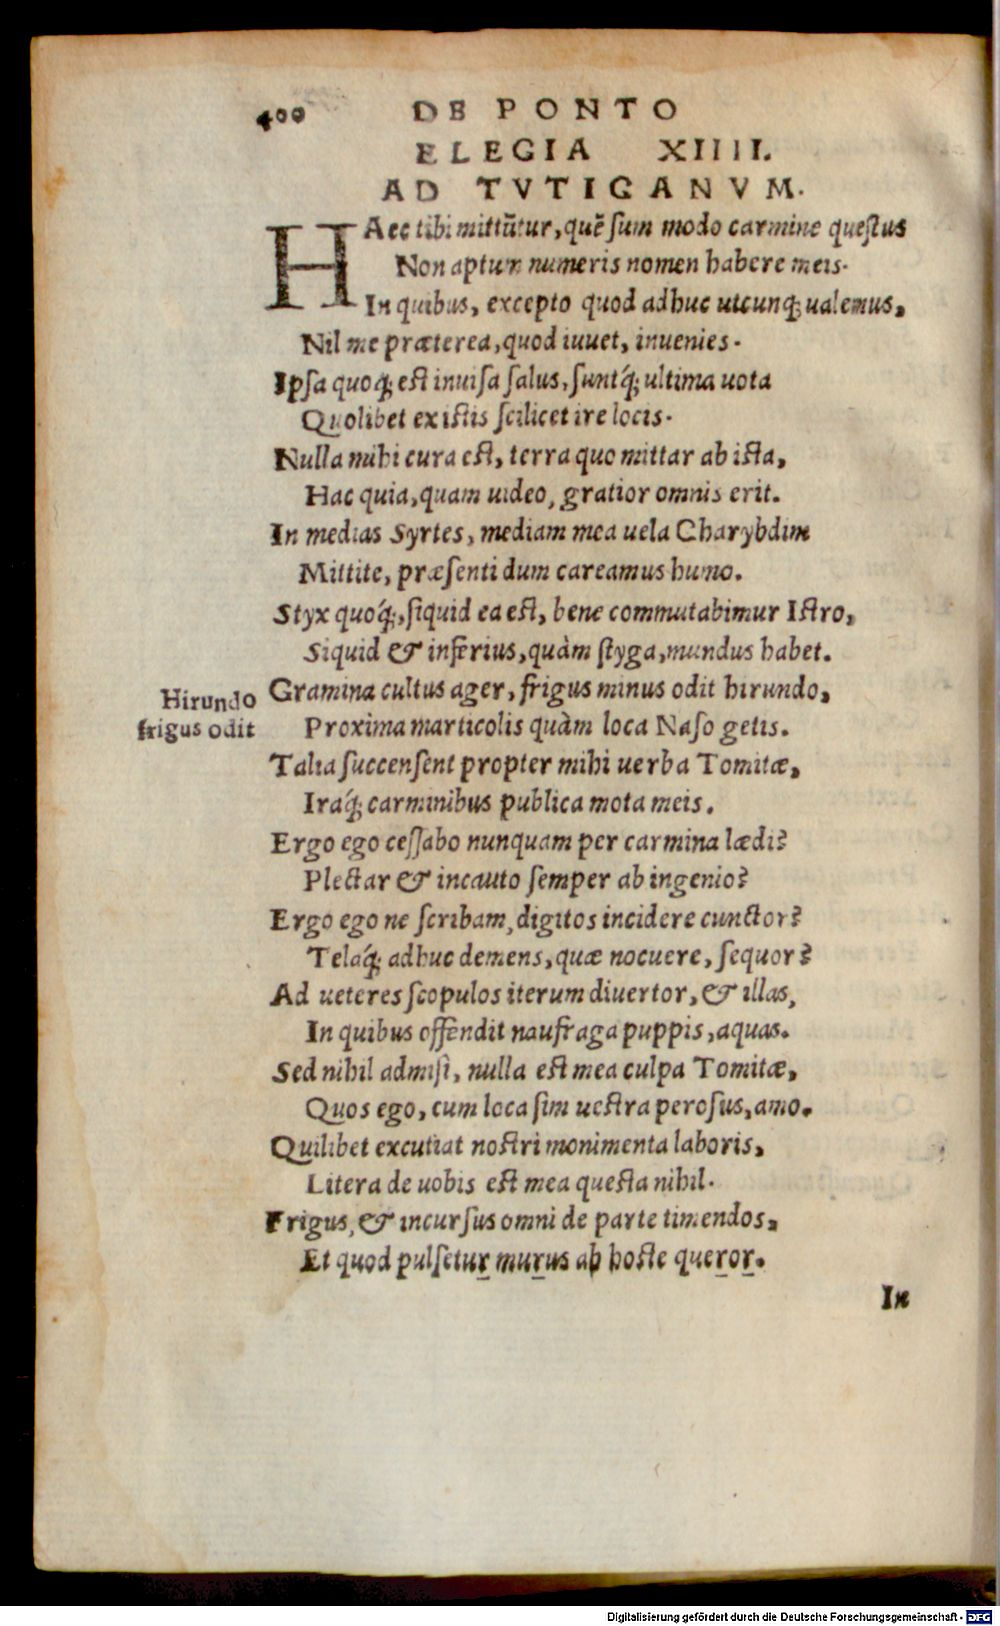 400 DE PONTO
ELEGIA XIIII.
AD TVTICANVM.
HAec tibi mittūtur, quē sum modo carmine questus
Non aptum numeris nomen habere meis.
In quibus, excepto quod adhuc utcunq; ualemus,
Nil me præterea, quod iuuet, inuenies.
Ipsa quoq; est inuisa salus, suntq́; ultima uota
Quolibet ex istis scilicet ire locis.
Nulla mihi cura est, terra quo mittar ab ista,
Hac quia, quam uideo, gratior omnis erit.
In medias Syrtes, mediam mea uela Charybdim
Mittite, præsenti dum careamus humo.
Styx quoq́;, siquid ea est, bene commutabimur Istro,
Siquid & inferius, quàm styga, mundus habet.
Gramina cultus ager, frigus minus odit hirundo,
Hirundo
frigus odit
Proxima marticolis quàm loca Naso getis.
Talia succensent propter mihi uerba Tomitæ,
Iraq́; carminibus publica mota meis.
Ergo ego cessabo nunquam per carmina lædi?
Plectar & incauto semper ab ingenio?
Ergo ego ne scribam, digitos incidere cunctor?
Telaq́; adhuc demens, quæ nocuere, sequor?
Ad ueteres scopulos iterum diuertor, & illas,
In quibus offendit naufraga puppis, aquas.
Sed nihil admisi, nulla est mea culpa Tomitæ,
Quos ego, cum loca sim uestra perosus, amo.
Quilibet excutiat nostri monimenta laboris,
Litera de uobis est mea questa nihil.
Frigus, & incursus omni de parte timendos,
Et quod pulsetur murus ab hoste queror.
In
Digitalisierung gefördert durch die Deutsche Forschungsgemeinschaft - DFG